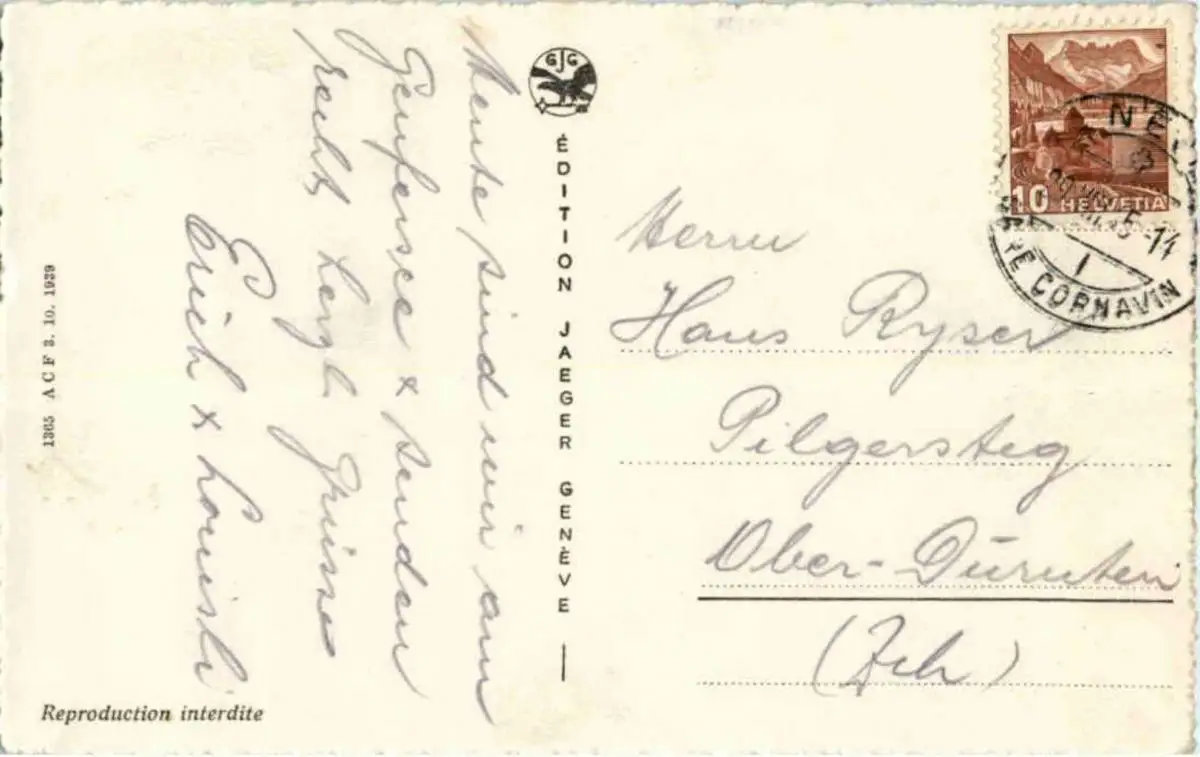 Heute sind wir am
Genfersee & senden
recht herzl. Grüsse
Erich & Louisli
GJG
ÉDITION JAEGER GENÈVE
Herrn
Hans Ryser
Pilgersteg
Ober-Dürnten
(Zch)
10 HELVETIA
GARE CORNAVIN
1
1365 A C F 3. 10. 1939
Reproduction interdite